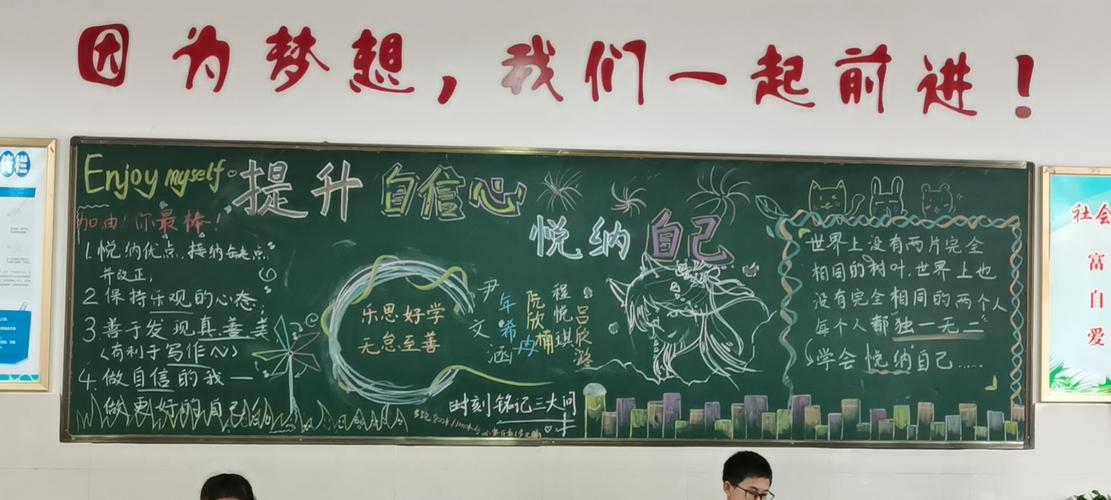 因为梦想，我们一起前进！
Enjoy myself
提升自信心
悦纳自己
加油！你最棒！
1.悦纳优点,接纳缺点
并改正.
2 保持乐观的心态.
3 善于发现真善美
(有利于写作~)
4.做自信的我—
做更好的自己
乐思好学
无怠至善
时刻铭记三大问
世界上没有两片完全
相同的树叶.世界上也
没有完全相同的两个人
每个人都独一无二
学会悦纳自己……
社会
富
自
爱